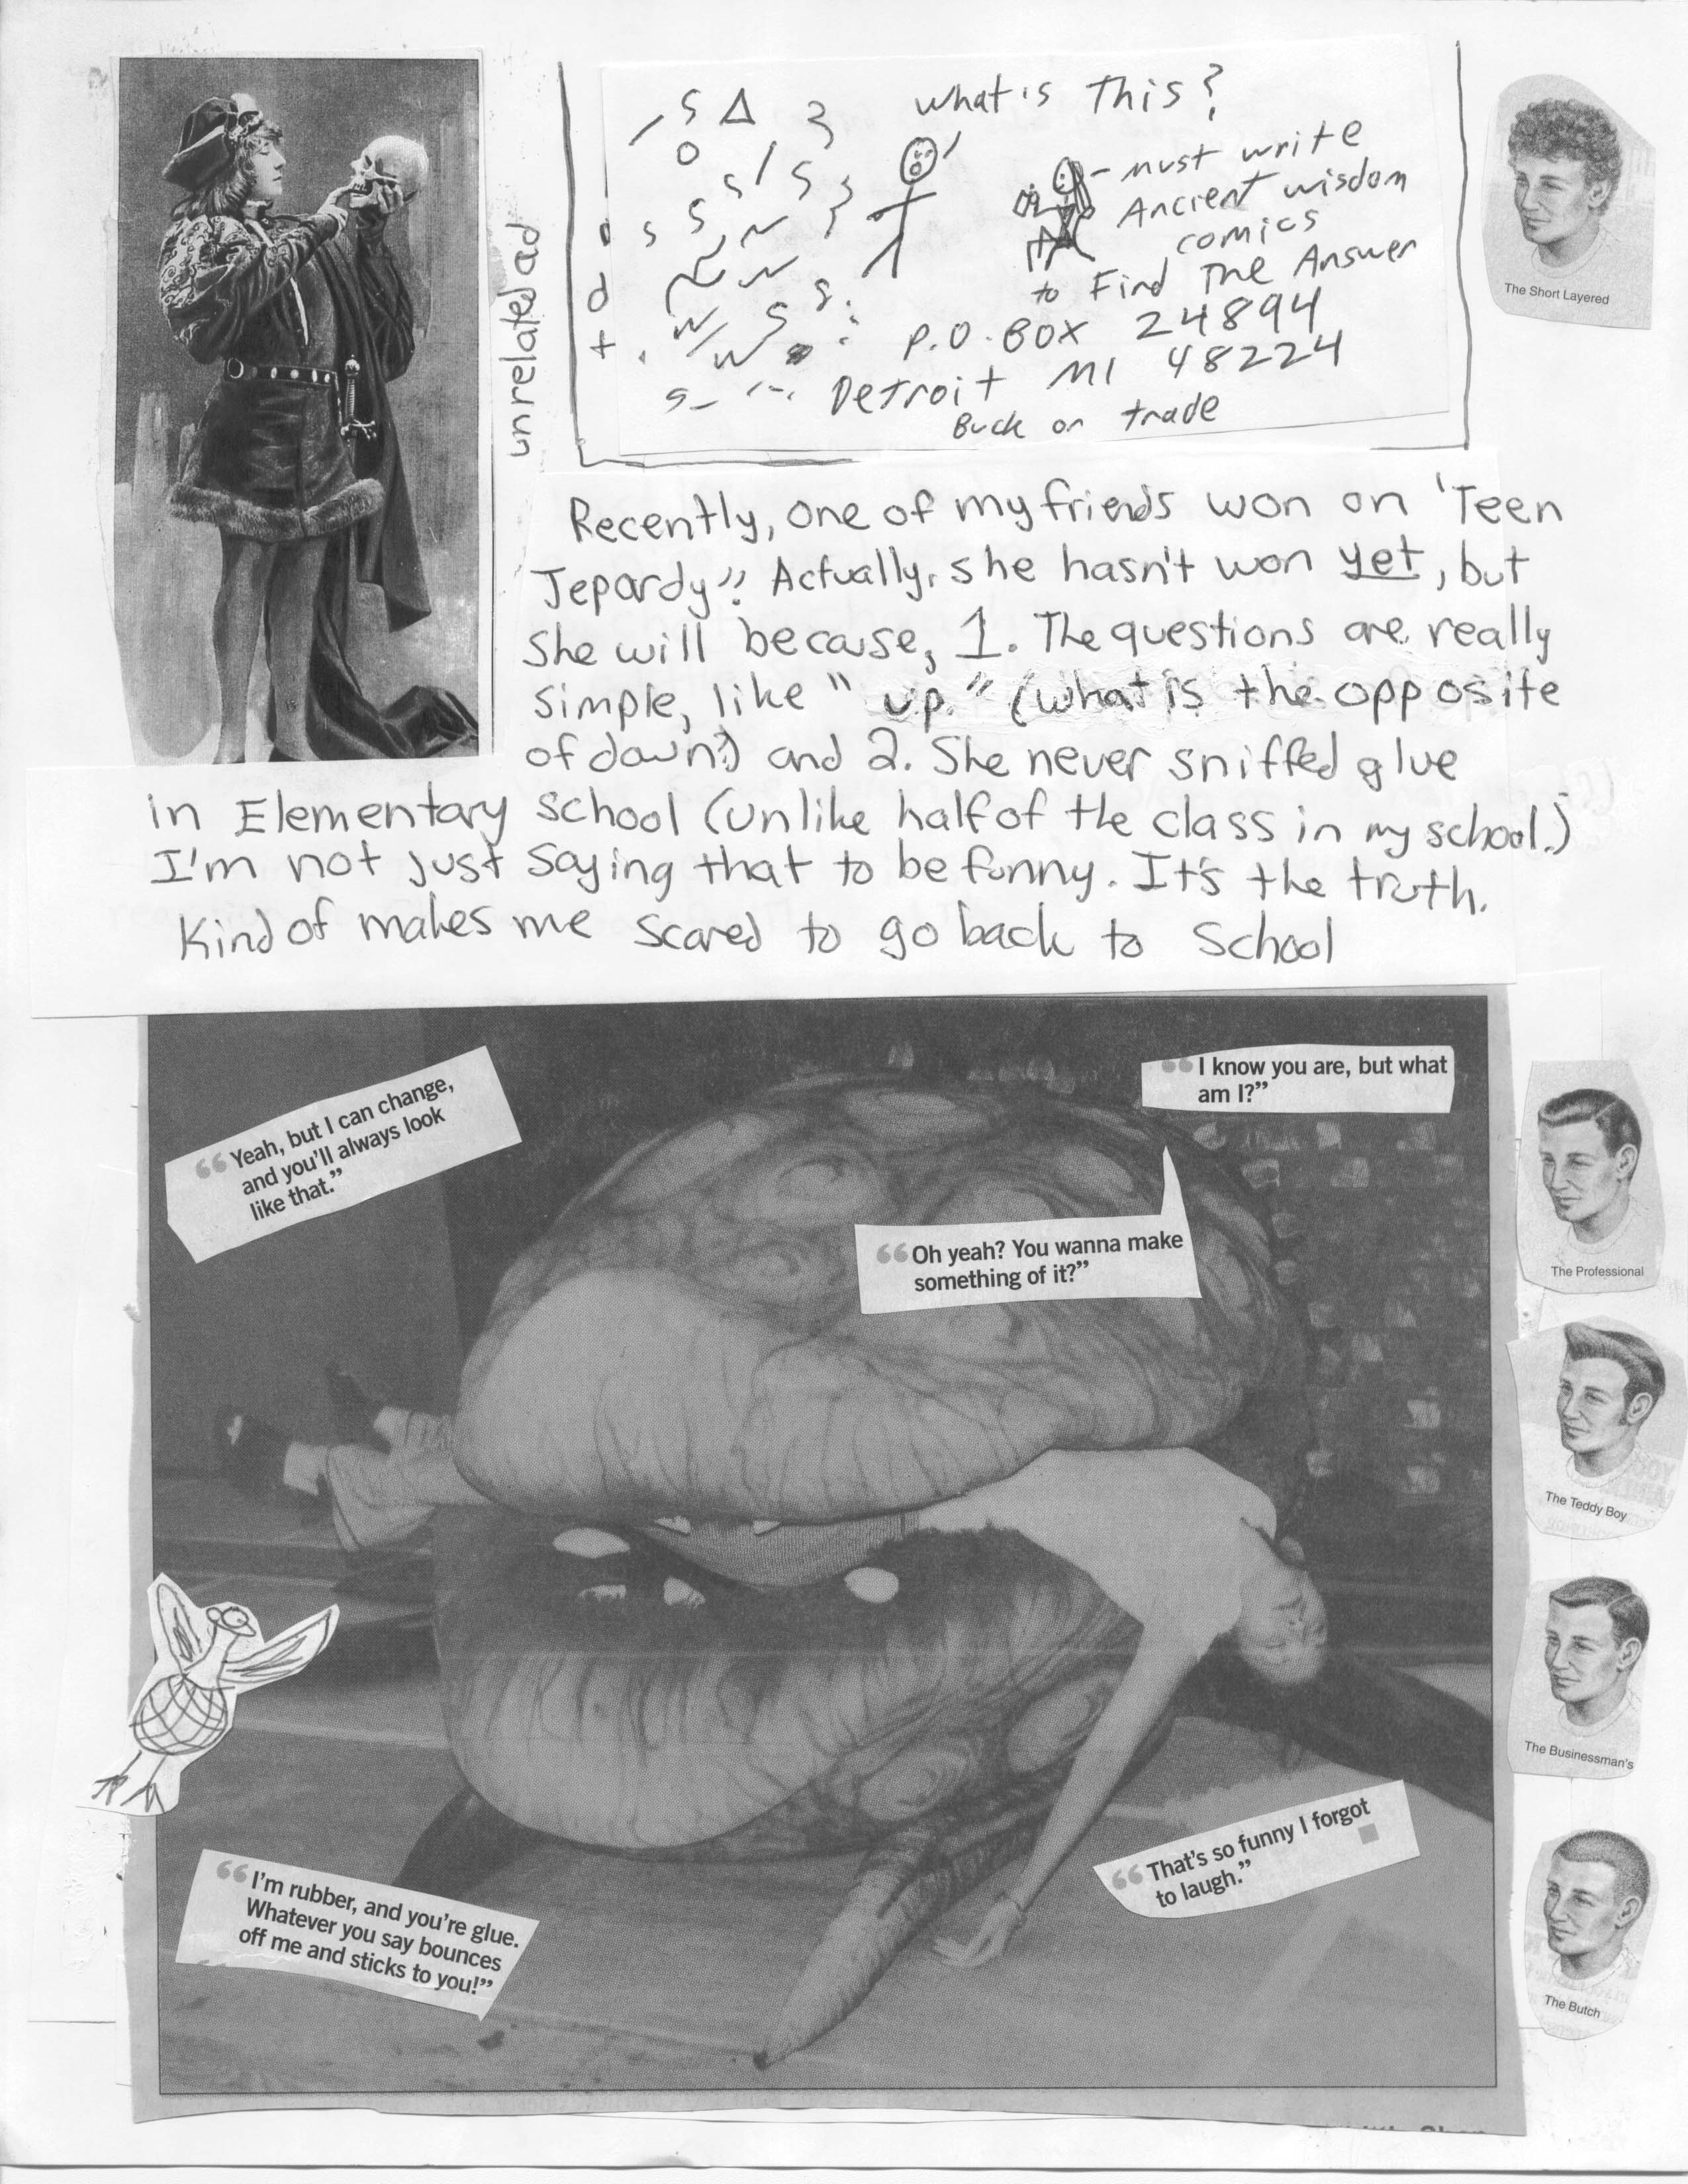 unrelated ad
what is This?
- must write
Ancient wisdom
comics
to Find The Answer
P.O. BOX 24894
Detroit MI 48224
Buck or trade
The Short Layered
Recently, one of my friends won on 'Teen
Jepardy"! Actually, she hasn't won yet, but
she will because, 1. The questions are really
simple, like "up." (what is the opposite
of down?) and 2. She never sniffed glue
in Elementary school (unlike half of the class in my school.)
I'm not just saying that to be funny. It's the truth.
Kind of makes me scared to go back to school
“Yeah, but I can change,
and you'll always look
like that.”
“I know you are, but what
am I?”
“Oh yeah? You wanna make
something of it?”
The Professional
The Teddy Boy
The Businessman's
“That's so funny I forgot
to laugh.”
“I'm rubber, and you're glue.
Whatever you say bounces
off me and sticks to you!”
The Butch